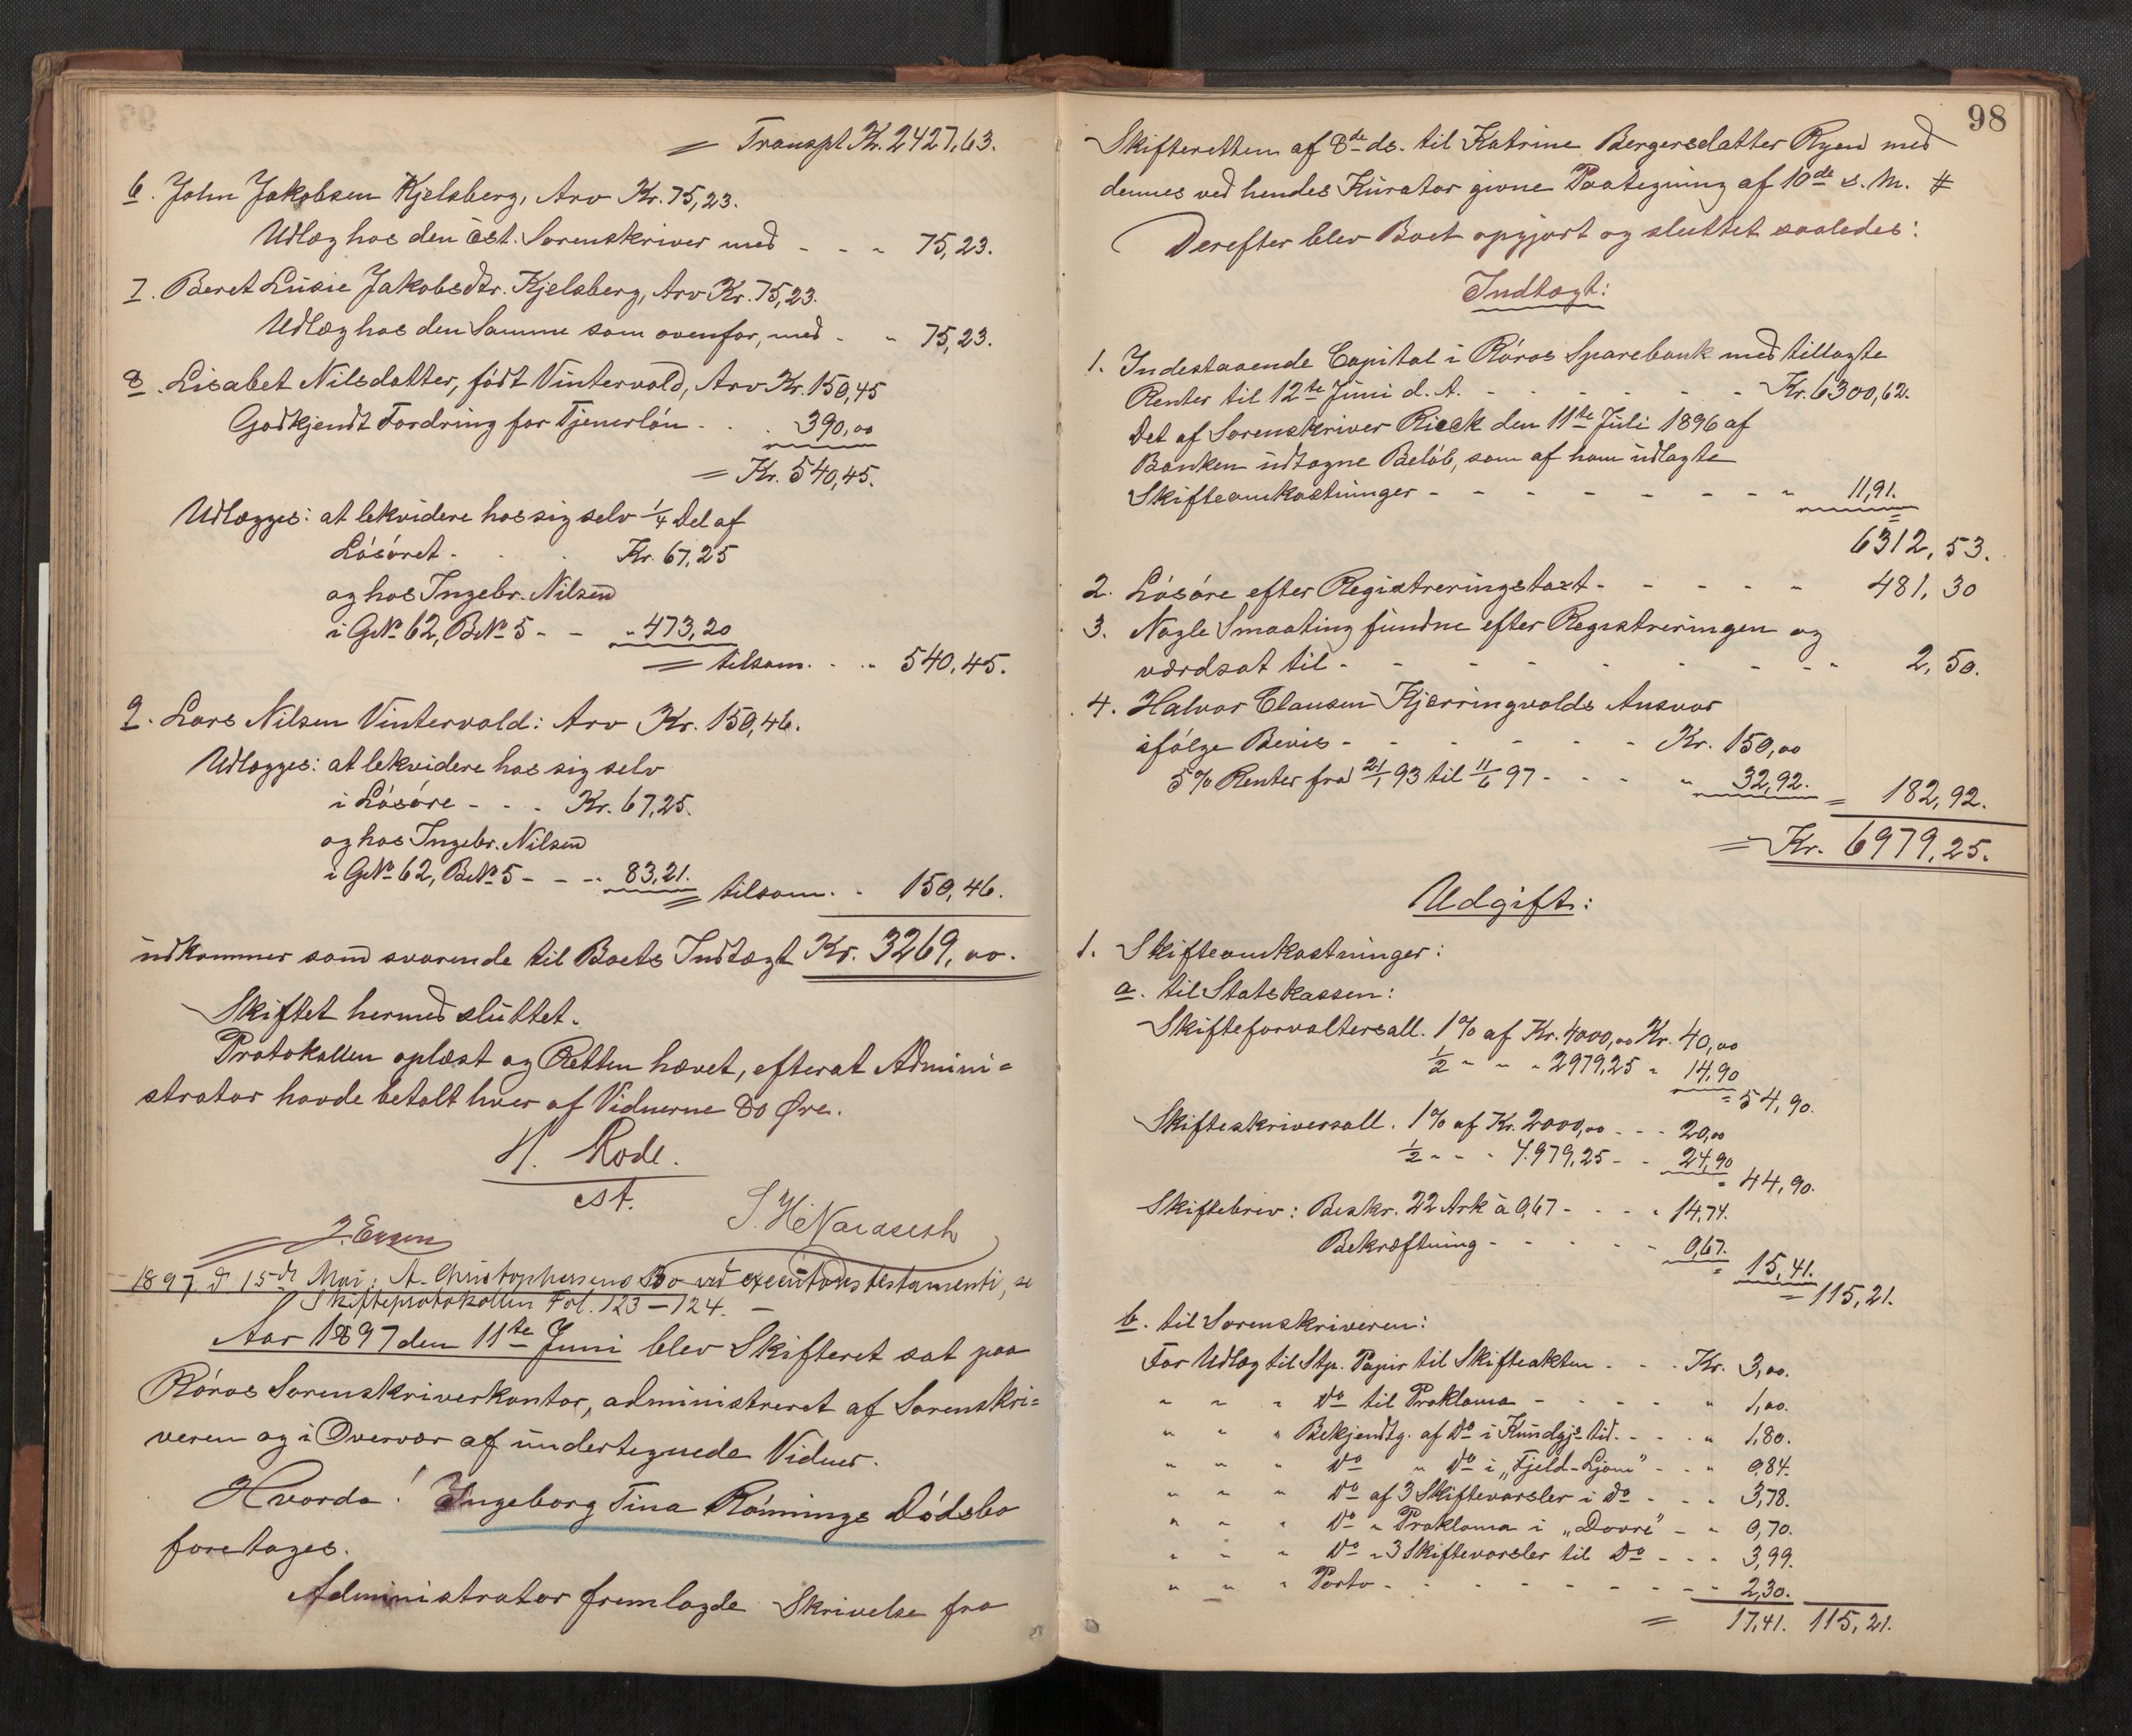 = Transpt Kr. 2427,63.
6. John Jakobsen Kjelsberg, Arv Kr. 75,23.
Udlæg hos den cst. Sorenskriver med - - " 75,23.
7. Beret Lusie Jakobsdtr. Kjelsberg, Arv Kr. 75,23.
Udlæg hos den Samme som ovenfor, med - " 75,23.
8. Lisabet Nilsdatter, född Vintervold, Arv Kr. 150,45
Godkjendt Fordring for Tjenerlön - . . 390,00
= Kr. 540,45.
Udlægges: at lekvidere hos sig selv 1/4 Del af
Lösöret - . . Kr. 67,25
og hos Ingebr. Nilsen
i GNo 62, BNo 5 - - " 473,20
= tilsam. - " 540,45.
9. Lars Nilsen Vintervold: Arv Kr. 150,46.
Udlægges: at lekvidere hos sig selv
i Lösöre - - - Kr. 67,25.
og hos Ingebr. Nilsen
i GNo 62, BNo 5 - - - 83,21.
= tilsam. - 150,46.
udkommer som svarende til Boets Indtægt Kr. 3269,00.
Skiftet hermed sluttet.
Protokollen oplæst og Retten hævet, efterat Admini=
strator havde betalt hver af Vidnerne 80 Øre.
H. Rode.
cst.
J. Eggen
1897 d 15de Mai: A. Christophersens Bo ved executores testamenti, se
Skifteprotokollen Fol. 123-124. -
Aar 1897 den 11te Juni blev Skifteret sat paa
Röros Sorenskriverkontor, administreret af Sorenskri=
veren og i Overvær af undertegnede Vidner.
Hvorda! Ingeborg Tina Rönnings Dödsbo
foretages.
Administrator fremlagde Skrivelse fra
98
Skifteretten af 8de ds. til Katrine Bergersdatter Ryen med
dennes ved hendes Kurator givne Paategning af 10de s. M. #
Derefter blev Boet opgjort og sluttet saaledes:
Indtægt:
1. Indestaaende Capital i Röros Sparebank med tillagte
Renter til 12te Juni d. A. - - - - - - Kr. 6300,62.
Det af Sorenskriver Rieck den 11te Juli 1896 af
Banken udtagne Belöb, som af ham udlagte
Skifteomkostninger - - - - - - - - " 11,91.
= 6312,53.
2. Lösöre efter Registreringstaxt - - - - - " 481,30
3. Nogle Smaating fundne efter Registreringen og
værdsat til - - - - - - - - - " 2,50.
4. Halvor Clausen Kjerringvolds Ansvar
ifölge Bevis - - - - - - Kr. 150,00
5% Renter fra 21/1 93 til 11/6 97 - - - " 32,92. = 182,92.
= Kr. 6979,25.
Udgift:
1. Skifteomkostninger:
a. til Statskassen:
Skifteforvaltersall. 1% af Kr. 4000,00 Kr. 40,00
1/2 " " " 2979,25 " 14,90
= 54,90.
Skifteskriversall. 1% af Kr. 2000,00 - - - 20,00
1/2 " " " 4.979,25 - - 24,90
= 44,90.
Skiftebrev: Beskr. 22 Ark à 0,67 - - - " 14,74.
Bekræftning - - - - - 0,67.
= 15,41.
= 115,21.
b. til Sorenskriveren:
For Udlæg til Stp. Papir til Skifteakten - - - Kr. 3,00.
" " " Do til Proklama - - - - - " 1,00.
" " " Bekjendtg. af Do i Kundgjs.tid. - - - " 1,80.
" " " Do " Do i „Fjeld-Ljom" - - " 0,84.
" " " Do af 3 Skiftevarsler i Do - - - 3,78.
" " " Do " Proklama i „Dovre" - " 0,70.
" " " Do " 3 Skiftevarsler til Do - - - 3,99.
" " " Porto - - - - - - - - " 2,30.
= 17,41. 115,21.